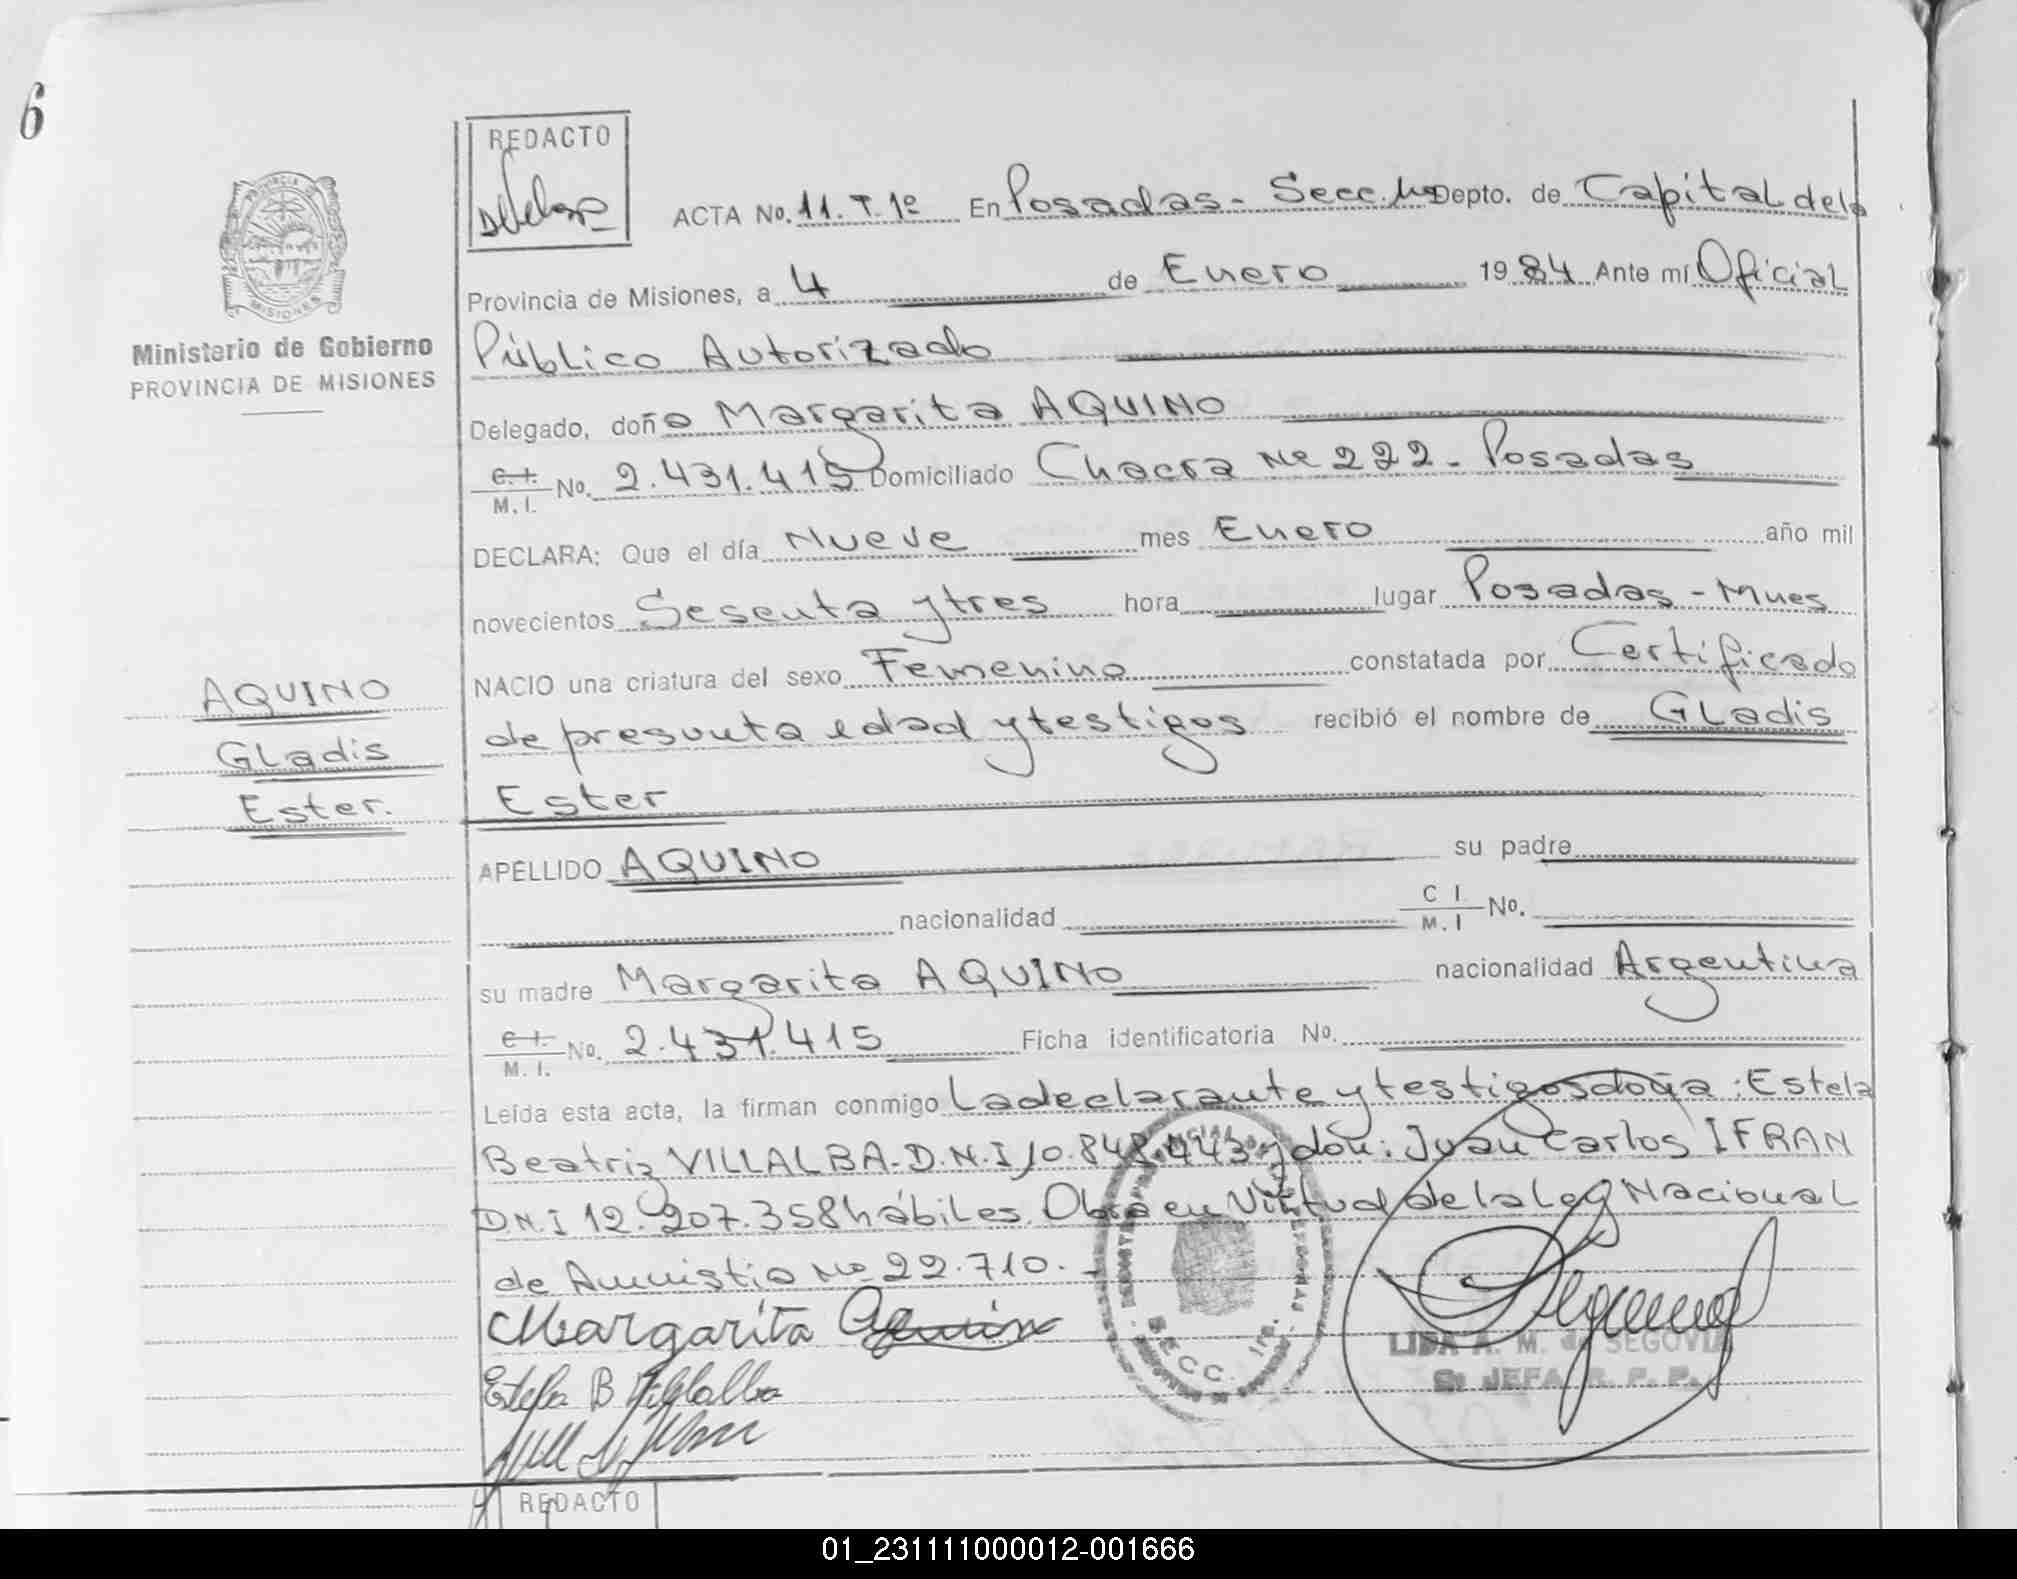 6
REDACTO
ACTA No. 11. T. 1º En Posadas - Secc. 1ra Depto. de Capital de la
Provincia de Misiones, a 4 de Enero 1984 Ante mí Oficial
Público Autorizado
PROVINCIA DE MISIONES
Ministerio de Gobierno
PROVINCIA DE MISIONES
Delegado, doña Margarita AQUINO
C.I. / M.I. No. 2.431.415 Domiciliado Chacra Nº 222 - Posadas
DECLARA: Que el día Nueve mes Enero año mil
novecientos Sesenta y tres hora lugar Posadas - Mnes
NACIO una criatura del sexo Femenino constatada por Certificado
de presunta edad y testigos recibió el nombre de Gladis
Ester
AQUINO
Gladis
Ester.
APELLIDO AQUINO su padre
nacionalidad C I / M. I No.
su madre Margarita AQUINO nacionalidad Argentina
C.I. / M. I. No. 2.431.415 Ficha identificatoria No.
Leída esta acta, la firman conmigo La declarante y testigos doña: Estela
Beatriz VILLALBA - D.N.I 10.848.443 y don: Juan Carlos IFRAN
D.N.I 12.207.358 hábiles. Obra en Virtud de la Ley Nacional
de Amnistia Nº 22.710. -
Margarita Aquino
Estela B Villalba
SECC. 1ra.
LIDA A. M. de SEGOVIA
JEFA R. P. P.
REDACTO
01_231111000012-001666